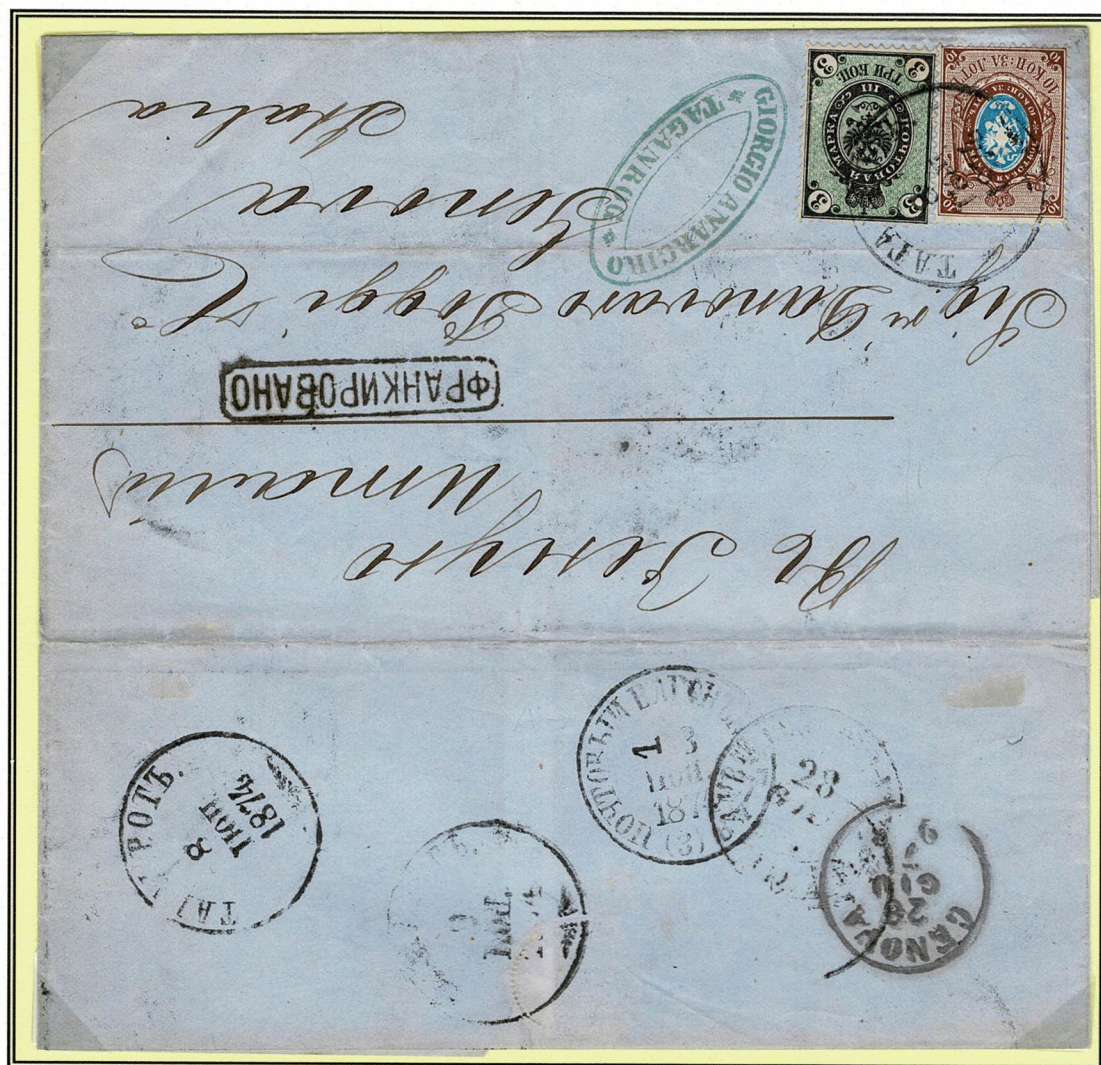 Въ Геную
Италія
ФРАНКИРОВАНО
Sig.ri Canovaro Poggi & Co
Genova
Italia
GIORGIO ANARGIRO
* TAGANROG *
3 3
ТРИ КОП.
ПОЧТОВАЯ МАРКА
III
3 3
10 10
10 КОП: ЗА ЛОТЪ
10 10
ТАГА
ТАГ РОГЪ.
8
ІЮН
1874
9
ІЮН.
ПОЧТОВЫЙ ВАГОНЪ
1
ІЮН.
187
(3)
28
GENOVA
28